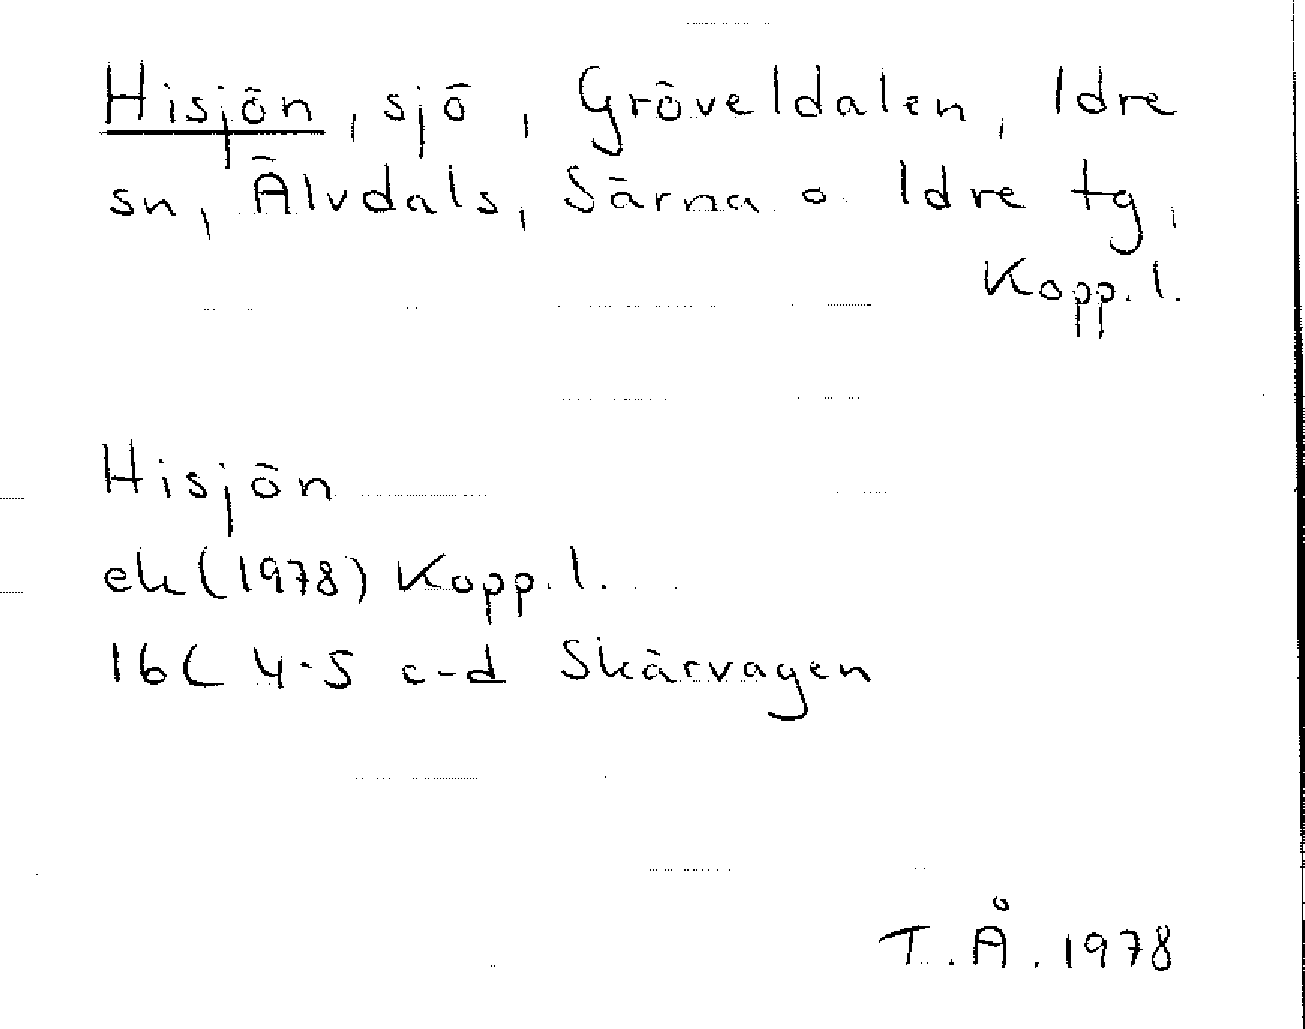 Hisjön, sjö, Gröveldalen, Idre
sn, Älvdals, Särna o Idre tg,
Kopp. l.
Hisjön
ek (1978) Kopp. l.
16C 4-5 c-d Skärvagen
T.Å. 1978